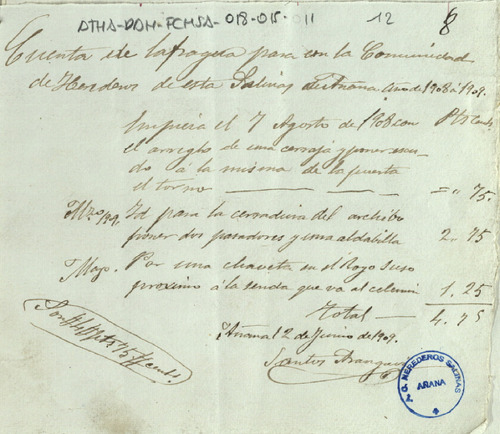 ATHA-DAH-FCMSA-018-015-011 12 8
Cuenta de la fragua para con la Comunidad
de Herederos de esta Salinas de Añana Año de 1908 a 1909.
Empieza el 7 Agosto de 1908 con Pts Cents
el arreglo de una cerraja y poner escu-
do á la misma de la puerta
el torno = " 75.
Mzo/29. Id para la cerradura del archibo
poner dos pasadores y una aldabilla 2. 75
Mayo. Por una chaveta en el Royo Suso
proximo á la senda que va al celemin 1. 25
Total 4. 75
Añana 12 de Junio de 1909.
Santos Aranguiz
Son 4 Pts 75 Cents.
G. HEREDEROS SALINAS
AÑANA